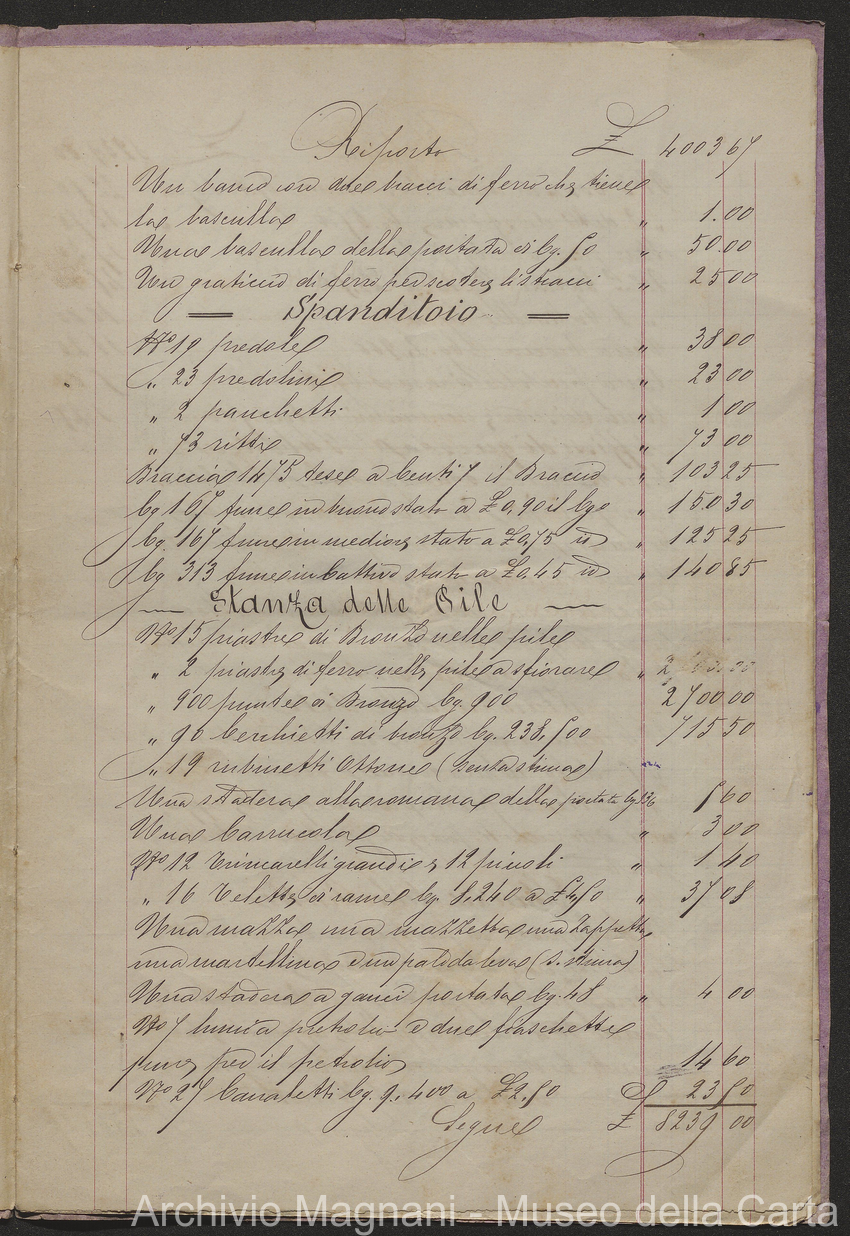 Riporto £ 4003 67
Un banco con due bracci di ferro che tiene
la basculla " 1.00
Una basculla della portata di kg. 50 " 50.00
Un graticcio di ferro per scotere li stracci " 25 00
Spanditoio
No 19 predole " 38 00
" 23 predoline " 23 00
" 2 panchetti " 1 00
" 73 ritti " 73 00
Braccia 1475 tese a Centi 7 il Braccio " 103 25
kg 167 fune in buono stato a £ 0,90 il kgo " 150 30
kg. 167 fune in mediore stato a £ 0,75 id " 125 25
kg 313 fune in cattivo stato a £ 0,45 id " 140 85
Stanza delle Pile
No 15 piastre di Bronzo nelle pile
" 2 piastre di ferro nelle pile a sfiorare "
" 900 punte di Bronzo kg. 900 2700 00
" 90 Cerchietti di bronzo kg. 238,500 715 50
" 19 rubinetti Ottone (senta stima)
Una stadera alla romana della portata kg 136 5 60
Una Carrucola " 3 00
No 12 Trincarelli grandi e 12 piccoli " 1 40
" 16 Telette di rame kg. 8,240 a £ 4,50 " 37 08
Una mazza una mazzetta una zappetta
una martellina e un palo da leva (s. stima)
Una stadera a ganci portata kg. 48 " 4 00
No 7 lumi a petrolio e due fiaschette
pure per il petrolio 14 60
No 27 Canaletti kg. 9,400 a £ 2,50 23 50
Segue £ 8239 00
Archivio Magnani - Museo della Carta